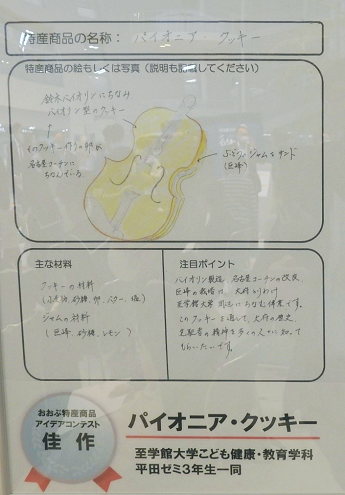 特産商品の名称： パイオニア・クッキー
特産商品の絵もしくは写真（説明も記載してください）
鈴木バイオリンにちなみ
バイオリン型のクッキー
クッキー
名古屋コーチンに
ちなんでいる
ぶどうジャムをサンド
（巨峰）
主な材料
クッキーの材料
（小麦粉、砂糖、卵、バター、塩）
ジャムの材料
（巨峰、砂糖、レモン）
注目ポイント
バイオリン製造、名古屋コーチンの改良、
巨峰の栽培は、大府
至学館大学 にちなむ偉業です。
このクッキーを通して、大府の歴史、
先駆者の精神を多くの人々に知って
もらいたいです。
おおぶ特産商品
アイデアコンテスト
佳作
パイオニア・クッキー
至学館大学こども健康・教育学科
平田ゼミ3年生一同